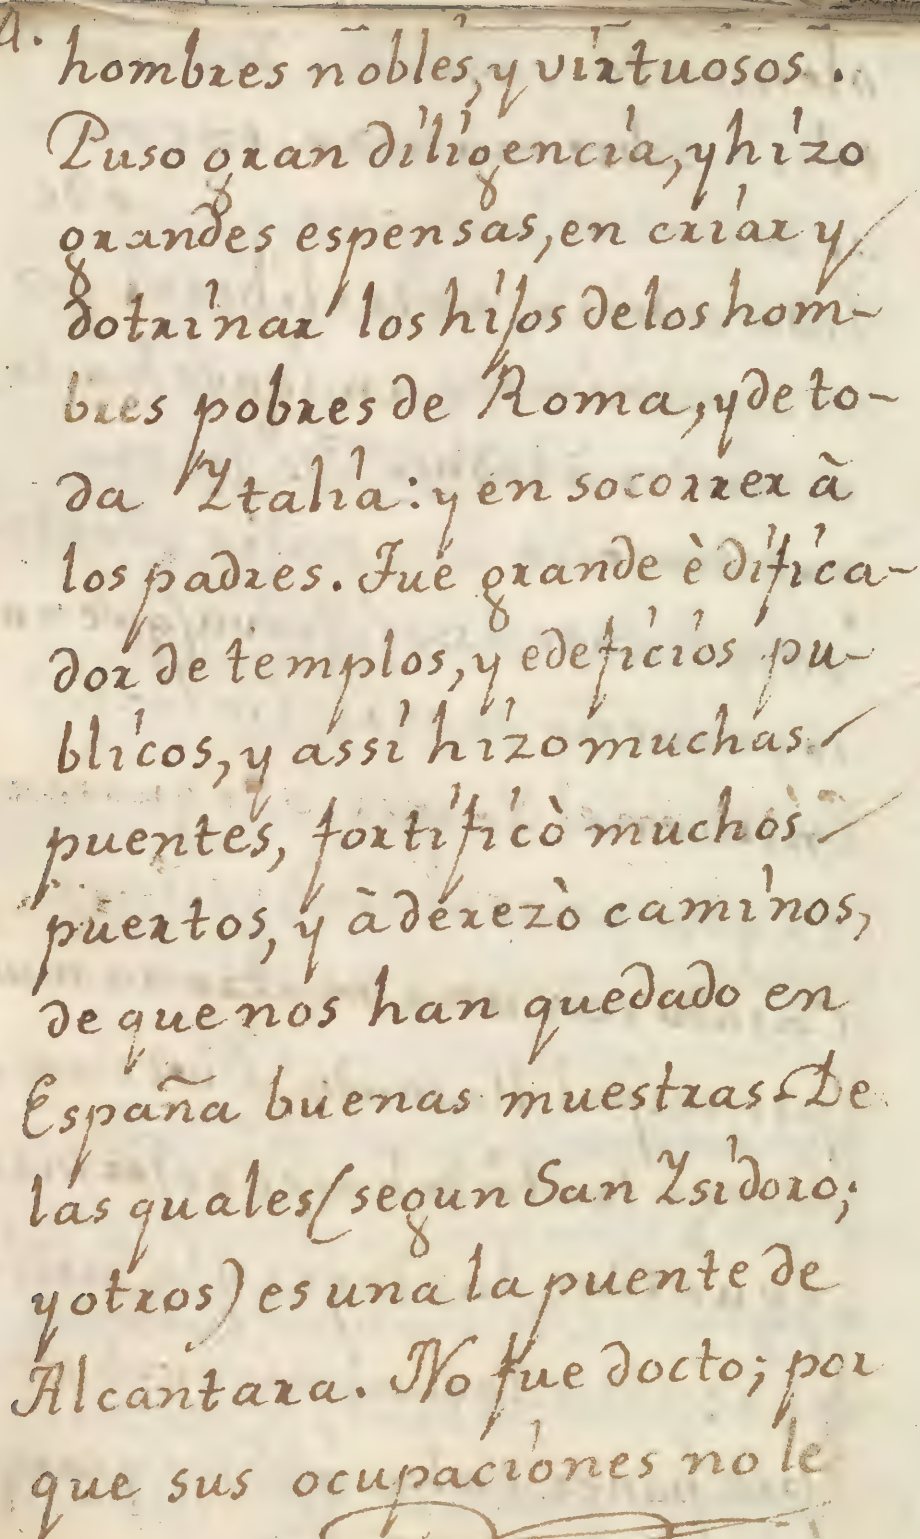 hombres nobles, y virtuosos.
Puso gran diligencia, y hizo
grandes espensas, en criar y
dotrinar los hijos de los hom-
bres pobres de Roma, y de to-
da Ytalia: y en socorrer à
los padres. Fue grande èdifica-
dor de templos, y edeficios pu-
blicos, y assi hizo muchas
puentes, fortificò muchos
puertos, y àderezò caminos,
de que nos han quedado en
España buenas muestras. De
las quales (segun San Ysidoro;
y otros) es una la puente de
Alcantara. No fue docto; por
que sus ocupaciones no le